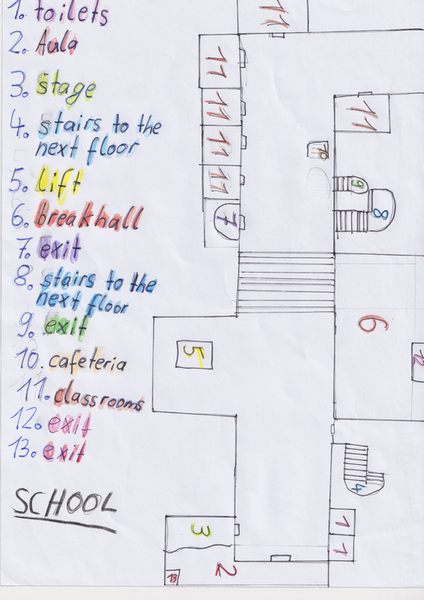 1. toilets
2. Aula
3. stage
4. stairs to the
next floor
5. Lift
6. breakhall
7. exit
8. stairs to the
next floor
9. exit
10. cafeteria
11. classrooms
12. exit
13. exit
SCHOOL
11
11
11
11
11
11
10
9
8
7
6
5
12
4
1
1
3
2
13